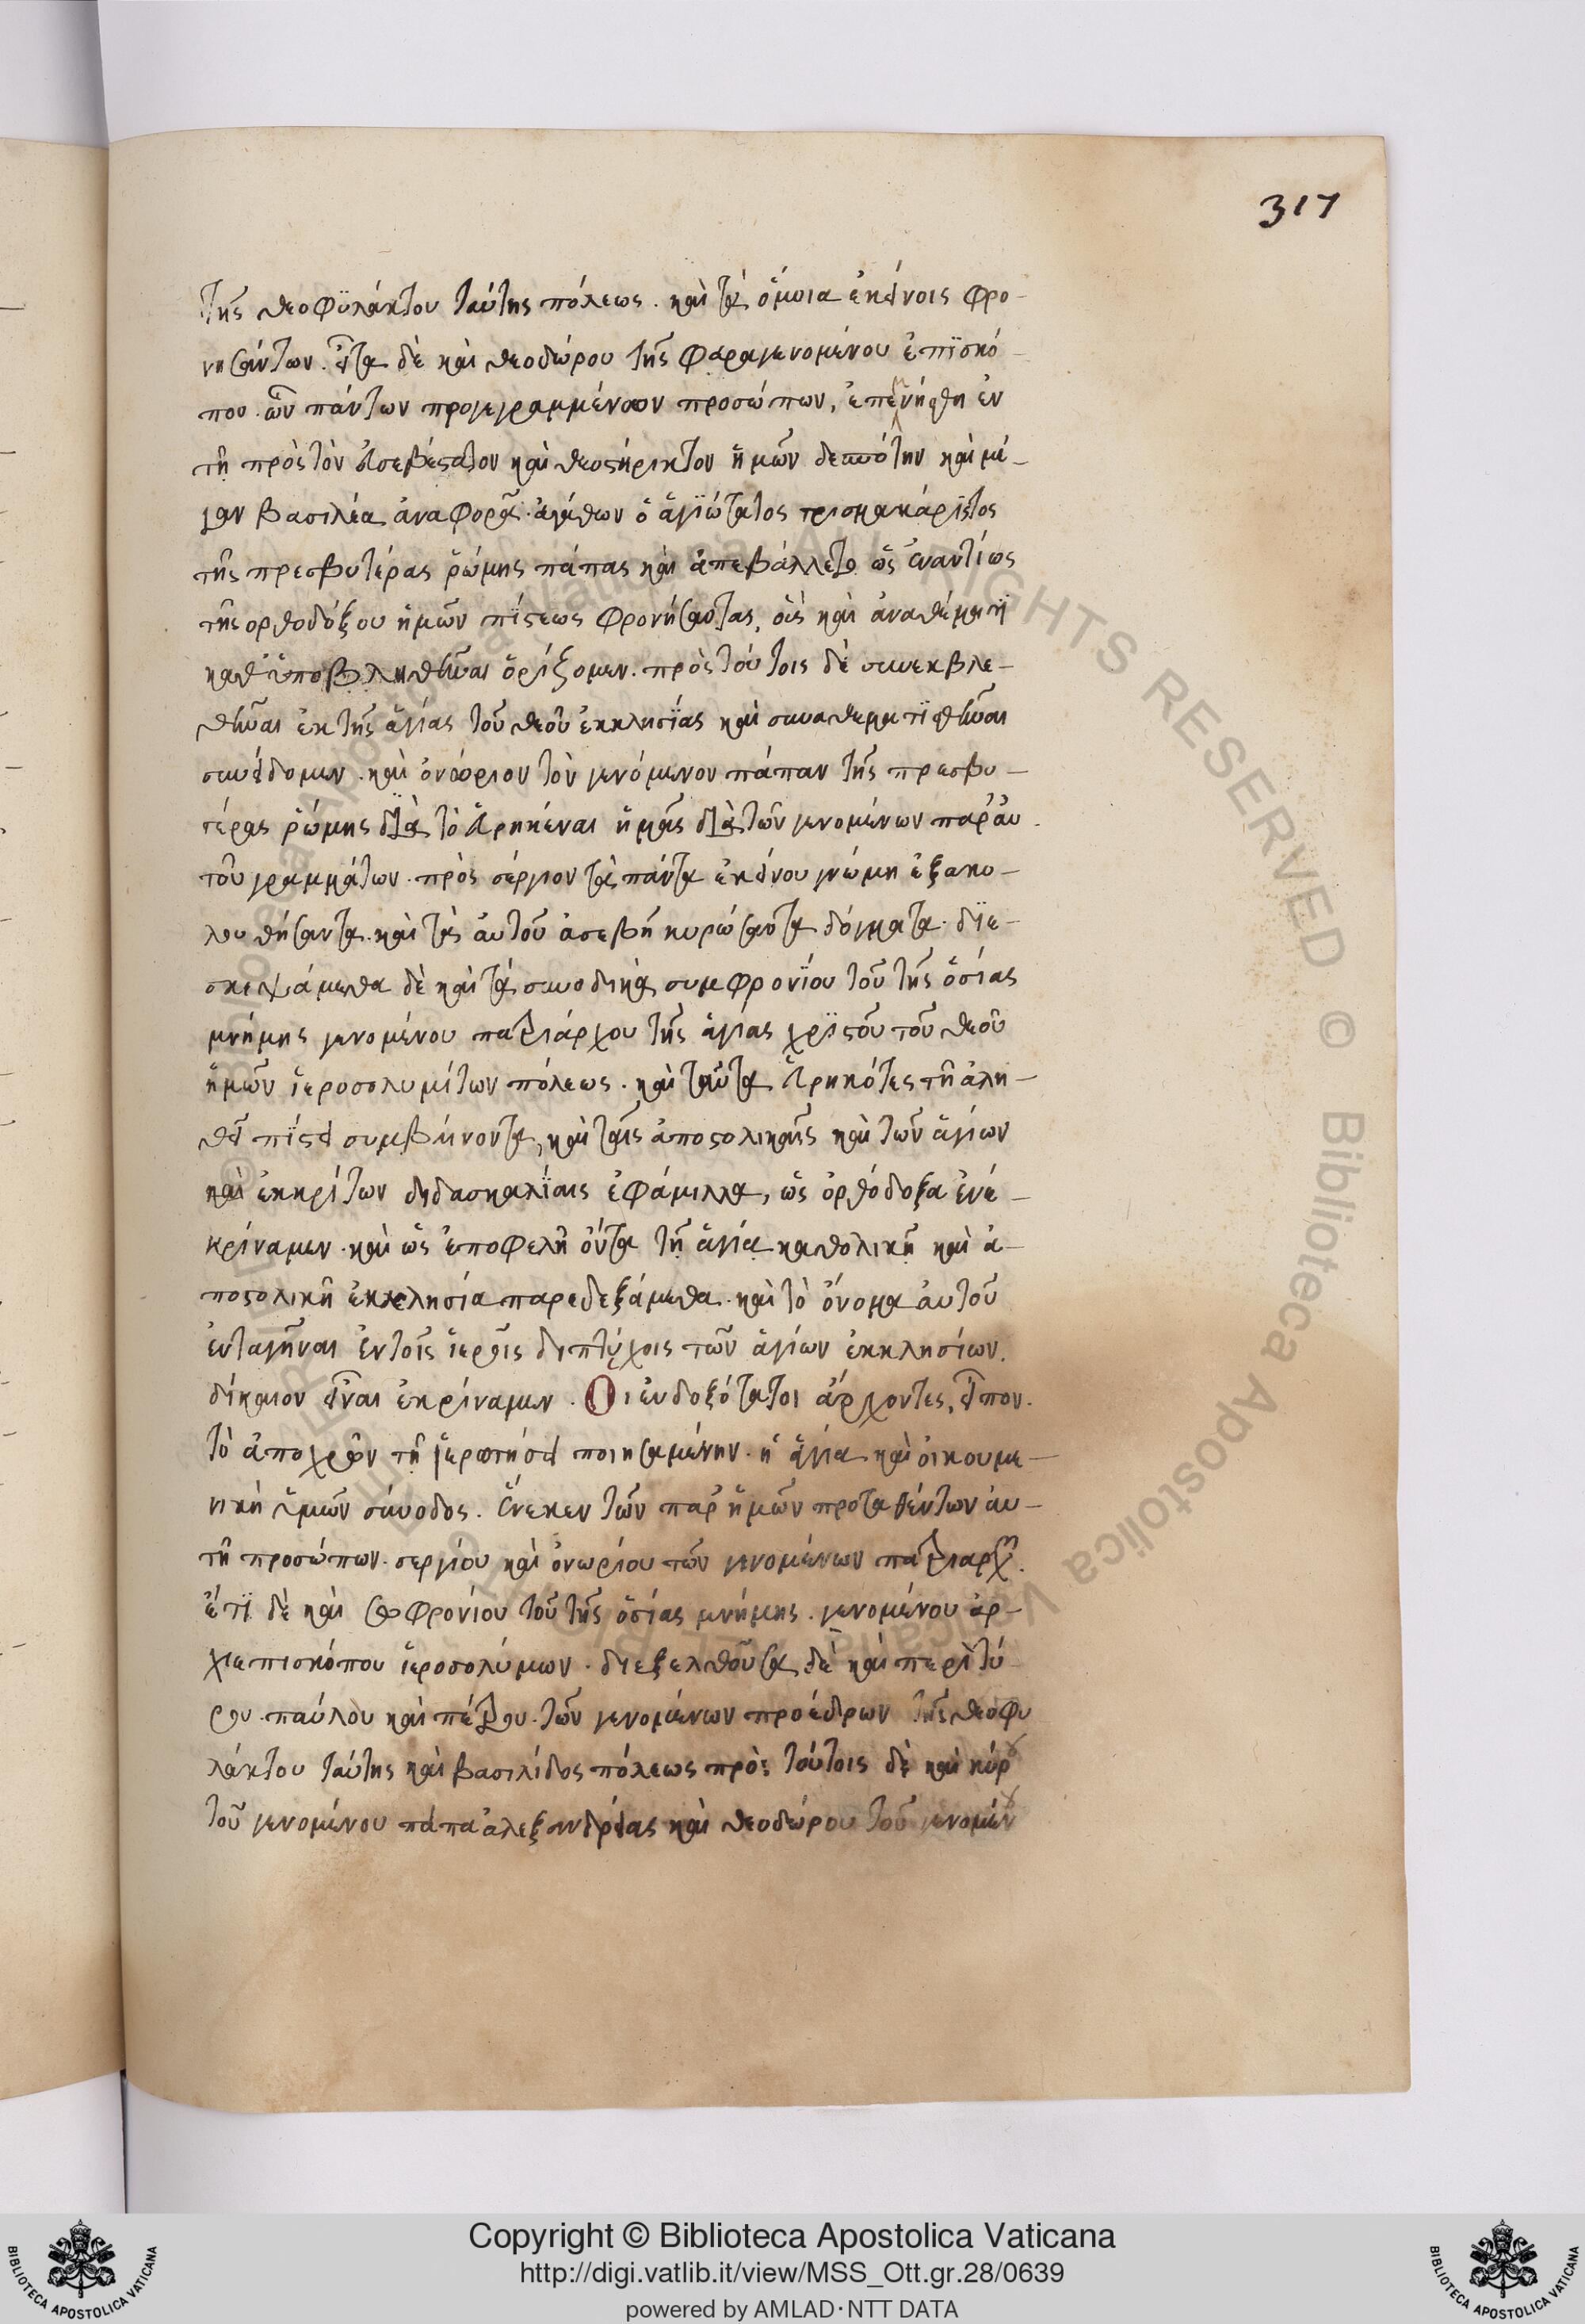 317
τῆς θεοφϋλάκτου ταύτης πόλεως. καὶ τὰ ὅμοια ἐκείνοις φρο-
νησάντων. εἶτα δὲ καὶ θεοδώρου τῆς φαραγενομένου ἐπϊσκό-
που. ὧν πάντων προγεγραμμένων προσώπων, ἐπεμνήσθη ἐν
τῇ πρὸς τὸν εὐσεβέστατον καὶ θεοστήρικτον ἡμῶν δεσπότην καὶ μέ-
γαν βασιλέα ἀναφορᾷ. ἀγάθων ὁ ἁγϊώτατος τρισμακάρϊστος
τῆς πρεσβυτέρας ῥώμης πάπας καὶ ἀπεβάλλετο ὡς ἐναντίως
τῆς ὀρθοδόξου ἡμῶν πίστεως φρονήσαντας, οὓς καὶ ἀναθέματϊ
καθ' ὑποβληθῆναι ὁρίζομεν. πρὸς τούτοις δὲ συνεκβλε-
θῆναι ἐκ τῆς ἁγίας τοῦ θεοῦ ἐκκλησϊας καὶ συναθεματϊσθῆναι
συνείδομεν. καὶ ὀνώριον τὸν γενόμενον πάπαν τῆς πρεσβυ-
τέρας ῥώμης διὰ τὸ εὑρηκέναι ἡμᾶς διὰ τῶν γενομένων παρ' αὐ
τοῦ γραμμάτων. πρὸς σέργιον τὰς πάντα ἐκείνου γνώμη ἐξακο-
λουθήσαντα. καὶ τὰ αὐτοῦ ἀσεβῆ κυρώσαντα δόγματα. δϊε-
σκεψάμεθα δὲ καὶ τὰ συνοδικὰ συμφρονΐου τοῦ τῆς ὁσίας
μνήμης γενομένου πατριάρχου τῆς ἁγίας χρϊστοῦ τοῦ θεοῦ
ἡμῶν ἱεροσολυμίτων πόλεως. καὶ ταῦτα εὑρηκότες τῇ ἀλη-
θεῖ πϊστει συμβαίνοντα, καὶ ταῖς ἀποστολικαῖς καὶ τῶν ἁγίων
καὶ ἐκκρίτων διδασκαλΐαις ἐφάμιλλα, ὡς ὀρθόδοξα ἐνέ-
κρίναμεν. καὶ ὡς ἐποφελῆ ὄντα τῇ ἁγίᾳ καθολικῇ καὶ ἀ-
ποστολικῇ ἐκκλησία παρεδεξάμεθα. καὶ τὸ ὄνομα αὐτοῦ
ἐνταγῆναι ἐν τοῖς ἱεροῖς διπτύχοις τῶν ἁγίων ἐκκλησίων.
δίκαιον εἶναι ἐκρίναμεν. Οι ἐνδοξότατοι ἄρχοντες, εἶπον.
τὸ ἀποχρῶν τῇ ἐρωτήσει ποιησαμένην. ἡ ἁγία καὶ οἰκουμε-
νικὴ ὑμῶν σύνοδος. ἕνεκεν τῶν παρ' ἡμῶν προταθέντων αὐ-
τῇ προσώπων. σεργίου καὶ ὀνωρίου τῶν γενομένων πατριαρχῶν.
ἔτϊ δὲ καὶ σωφρονίου τοῦ τῆς ὁσίας μνήμης. γενομένου ἀρ-
χιεπισκόπου ἱεροσολύμων. διεξελθοῦσα δὲ καὶ περὶ πύ
ρου. παύλου καὶ πέτρου. τῶν γενομένων προέδρων τῆς θεοφυ
λάκτου ταύτης καὶ βασιλίδος πόλεως πρὸς τούτοις δὲ καὶ κύρου
τοῦ γενομένου πάπα ἀλεξανδρείας καὶ θεοδώρου τοῦ γενομένου
Copyright © Biblioteca Apostolica Vaticana
http://digi.vatlib.it/view/MSS_Ott.gr.28/0639
powered by AMLAD·NTT DATA